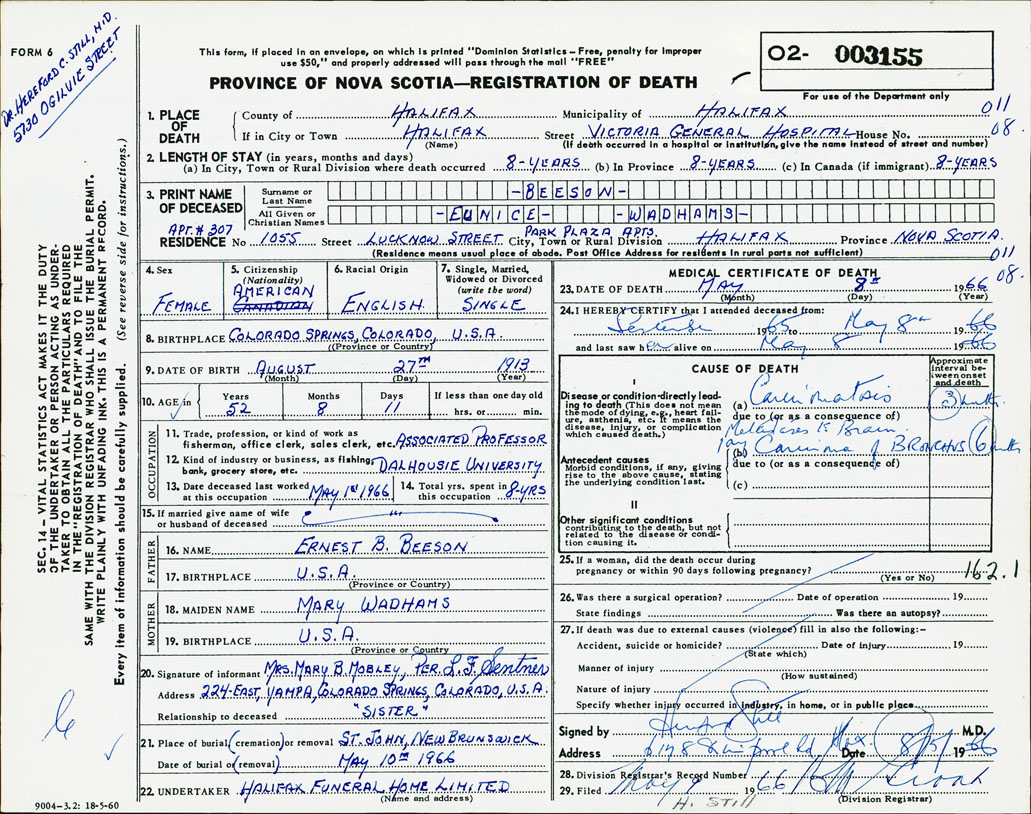 FORM 6
DR. HEREFORD C. STILL, M.D.
5730 OGILVIE STREET
This form, if placed in an envelope, on which is printed "Dominion Statistics – Free, penalty for improper
use $50," and properly addressed will pass through the mail "FREE"
PROVINCE OF NOVA SCOTIA—REGISTRATION OF DEATH
02- 003155
For use of the Department only
011
08.
1. PLACE OF DEATH
County of HALIFAX Municipality of HALIFAX
If in City or Town HALIFAX Street VICTORIA GENERAL HOSPITAL House No.
(Name) (If death occurred in a hospital or institution, give the name instead of street and number)
2. LENGTH OF STAY (in years, months and days)
(a) In City, Town or Rural Division where death occurred 8-YEARS (b) In Province 8-YEARS. (c) In Canada (if immigrant) 8-YEARS
3. PRINT NAME OF DECEASED
Surname or Last Name -BEESON-
All Given or Christian Names -EUNICE- -WADHAMS-
APT. # 307 PARK PLAZA APTS.
RESIDENCE No 1055 Street LUCKNOW STREET City, Town or Rural Division HALIFAX Province NOVA SCOTIA.
(Residence means usual place of abode. Post Office Address for residents in rural parts not sufficient)
011
08.
4. Sex
FEMALE
5. Citizenship
(Nationality)
AMERICAN
CANADIAN
6. Racial Origin
ENGLISH.
7. Single, Married, Widowed or Divorced
(write the word)
SINGLE
8. BIRTHPLACE COLORADO SPRINGS, COLORADO, U.S.A.
(Province or Country)
9. DATE OF BIRTH AUGUST 27TH 1913
(Month) (Day) (Year)
10. AGE Years Months Days If less than one day old
52 8 11 hrs. or min.
OCCUPATION
11. Trade, profession, or kind of work as
fisherman, office clerk, sales clerk, etc. ASSOCIATED PROFESSOR
12. Kind of industry or business, as fishing,
bank, grocery store, etc. DALHOUSIE UNIVERSITY
13. Date deceased last worked at this occupation MAY 1st 1966
14. Total yrs. spent in this occupation 8-YRS
15. If married give name of wife
or husband of deceased
FATHER
16. NAME ERNEST B. BEESON
17. BIRTHPLACE U.S.A.
(Province or Country)
MOTHER
18. MAIDEN NAME MARY WADHAMS
19. BIRTHPLACE U.S.A.
(Province or Country)
20. Signature of informant MRS. MARY B. MOBLEY, PER. L.F. Sentner
Address 224-EAST, YAMPA, COLORADO SPRINGS, COLORADO, U.S.A.
Relationship to deceased "SISTER"
21. Place of burial (cremation) or removal ST. JOHN, NEW BRUNSWICK
Date of burial or (removal) MAY 10TH 1966
22. UNDERTAKER HALIFAX FUNERAL HOME LIMITED
(Name and address)
9004-3.2: 18-5-60
MEDICAL CERTIFICATE OF DEATH
23. DATE OF DEATH MAY 8th 1966
(Month) (Day) (Year)
24. I HEREBY CERTIFY that I attended deceased from:
September 1965 to May 8th 1966
and last saw her alive on May 8 1966
CAUSE OF DEATH
Approximate interval between onset and death
I
Disease or condition directly leading to death (This does not mean the mode of dying, e.g., heart failure, asthenia, etc. It means the disease, injury, or complication which caused death.)
(a) Carcinomatosis 3 mths.
due to (or as a consequence of)
Metastases to Brain
Antecedent causes
Morbid conditions, if any, giving rise to the above cause, stating the underlying condition last.
(b) Carcinoma of BRONCHUS 6 mths
due to (or as a consequence of)
(c)
II
Other significant conditions
contributing to the death, but not related to the disease or condition causing it.
25. If a woman, did the death occur during
pregnancy or within 90 days following pregnancy?
(Yes or No)
162.1
26. Was there a surgical operation? Date of operation 19
State findings Was there an autopsy?
27. If death was due to external causes (violence) fill in also the following:–
Accident, suicide or homicide? Date of injury 19
(State which)
Manner of injury
(How sustained)
Nature of injury
Specify whether injury occurred in industry, in home, or in public place
Signed by Hereford Still M.D.
Address Hfx. Date 8/5/ 1966
28. Division Registrar's Record Number
29. Filed May 9 1966
(Division Registrar)
H. Still
SEC. 14 – VITAL STATISTICS ACT MAKES IT THE DUTY
OF THE UNDERTAKER OR PERSON ACTING AS UNDER-
TAKER TO OBTAIN ALL THE PARTICULARS REQUIRED
IN THE "REGISTRATION OF DEATH" AND TO FILE THE
SAME WITH THE DIVISION REGISTRAR WHO SHALL ISSUE THE BURIAL PERMIT.
WRITE PLAINLY WITH UNFADING INK. THIS IS A PERMANENT RECORD.
Every item of information should be carefully supplied. (See reverse side for instructions.)